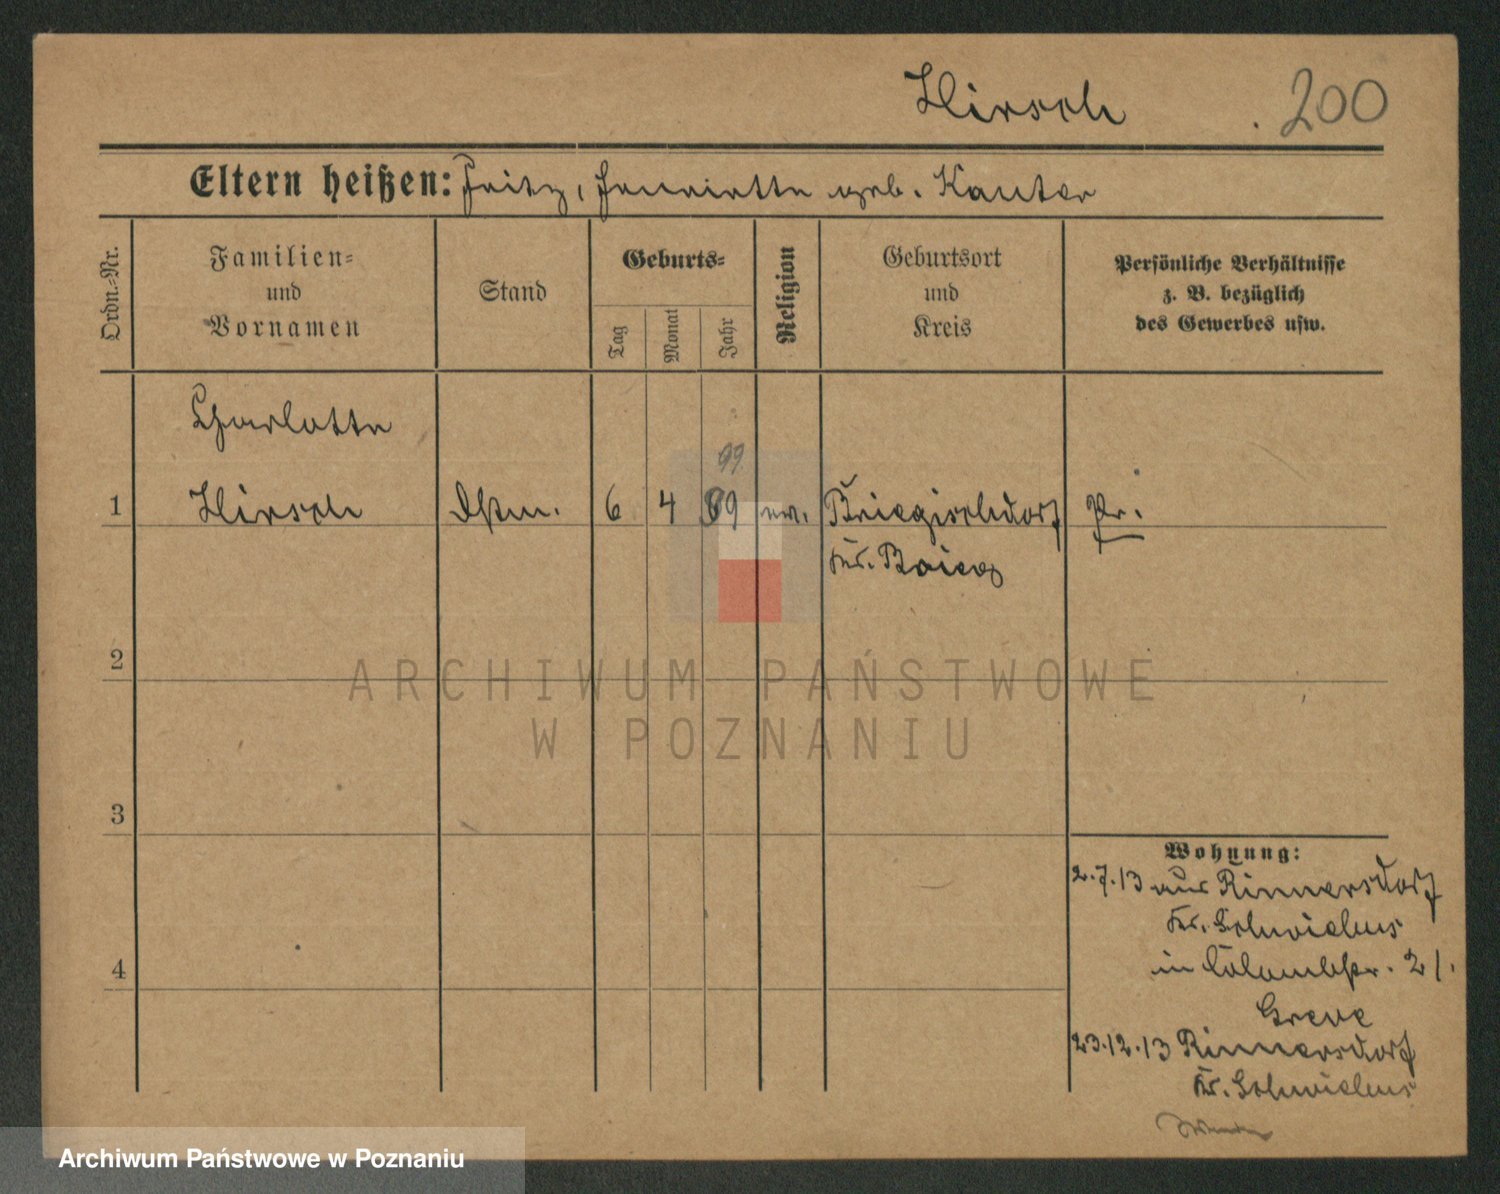 Hirsch 200
Eltern heißen: Fritz, Henriette geb. Kantor
Ordn.-Nr.
Familien-
und
Vornamen
Stand
Geburts-
Tag
Monat
Jahr
Religion
Geburtsort
und
Kreis
Persönliche Verhältnisse
z. B. bezüglich
des Gewerbes usw.
Charlotte
99
1 Hirsch 6 4 89 ev. Kr.
Pr.
2
ARCHIWUM PAŃSTWOWE
W POZNANIU
3
Wohnung:
2.7.13 aus Rinnersdorf
Kr. Schwiebus
in Colombstr. 21.
Greve
4
23.12.13 Rinnersdorf
Kr. Schwiebus
Archiwum Państwowe w Poznaniu